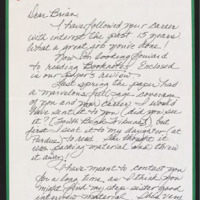 Dear Brian,
I have followed your career
with interest the past 15 years.
What a great job you've done!
Now I'm looking forward
to reading Booknotes. Enclosed
is our paper's review.
Last spring the paper had
a marvelous full-page coverage
of you and your career. I would
have sent it to you (did you see
it? (South Bend Tribune) but
first I sent it to my daughter (at
Purdue) to read. She thought it
was packing material and threw
it away!
I have meant to contact you
for a long time as I think you
might find my step-sister good
interview material. She's Ven